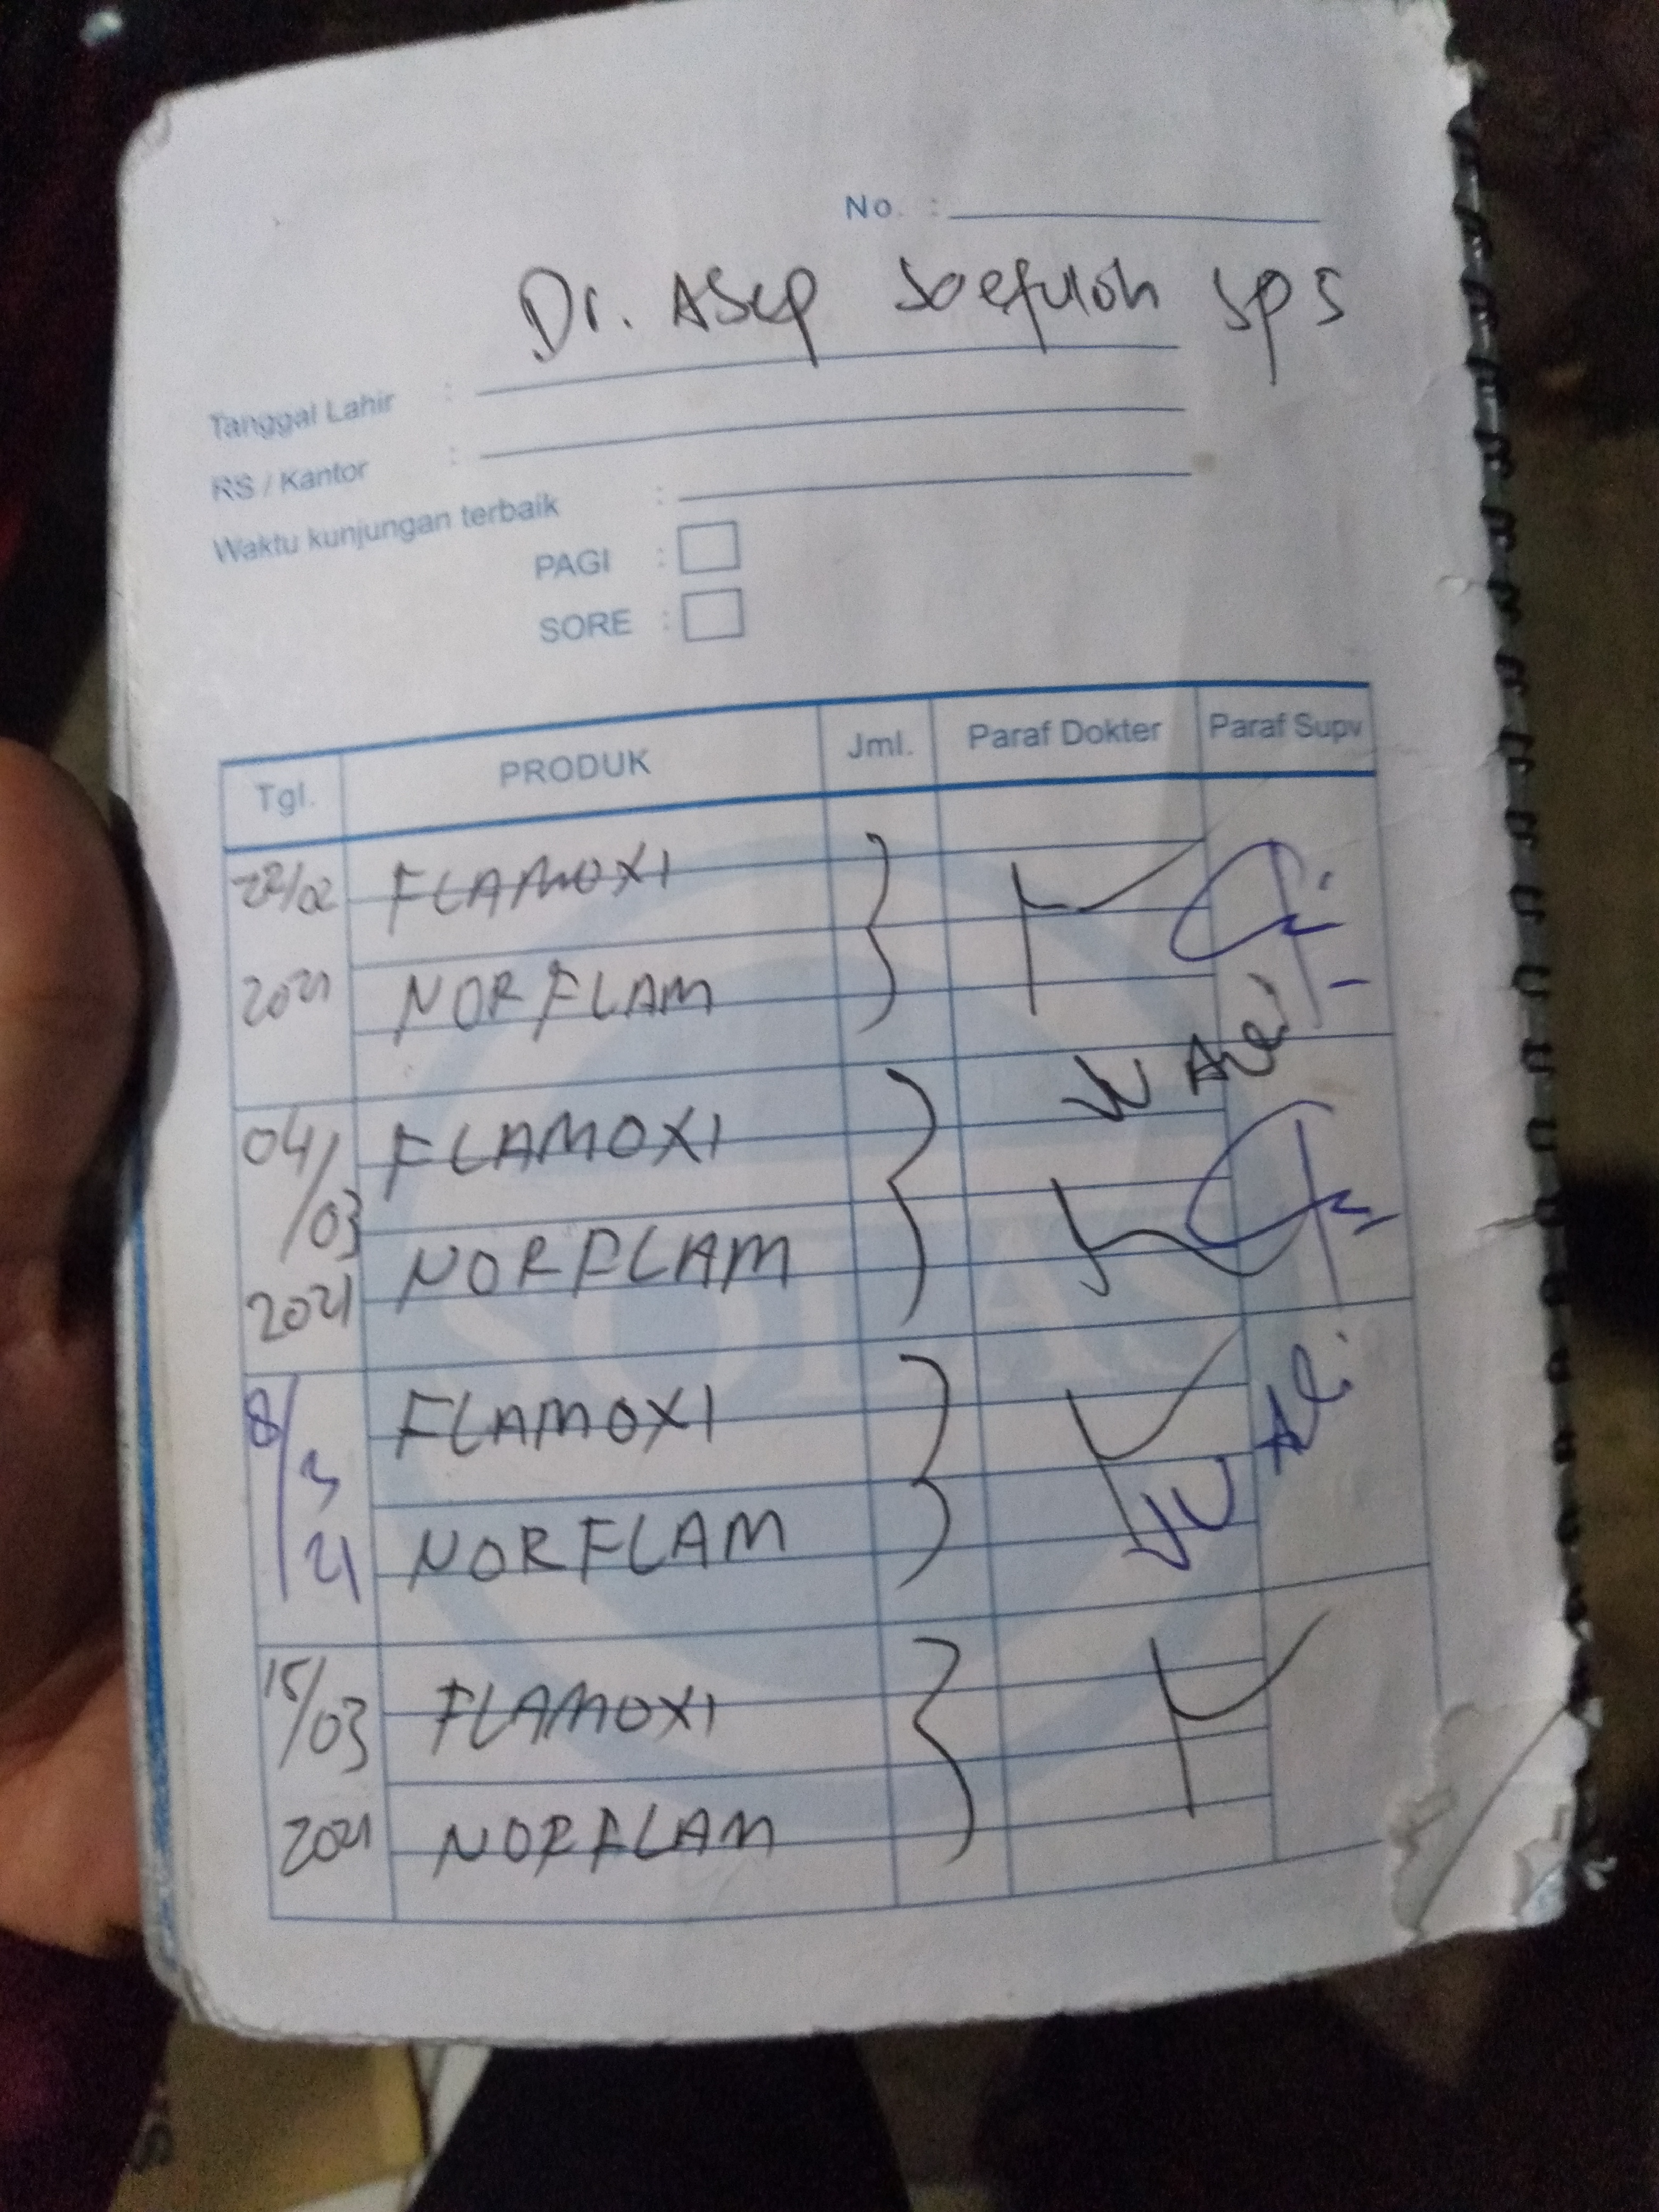 No. :
Dr. Asep Soefuloh SpS
Tanggal Lahir :
RS / Kantor :
Waktu kunjungan terbaik :
PAGI :
SORE :
Tgl. PRODUK Jml. Paraf Dokter Paraf Supv
22/02 FLAMOXI
2021 NORFLAM
04/03 FLAMOXI
2021 NORFLAM
8/3 FLAMOXI
21 NORFLAM
15/03 FLAMOXI
2021 NORFLAM